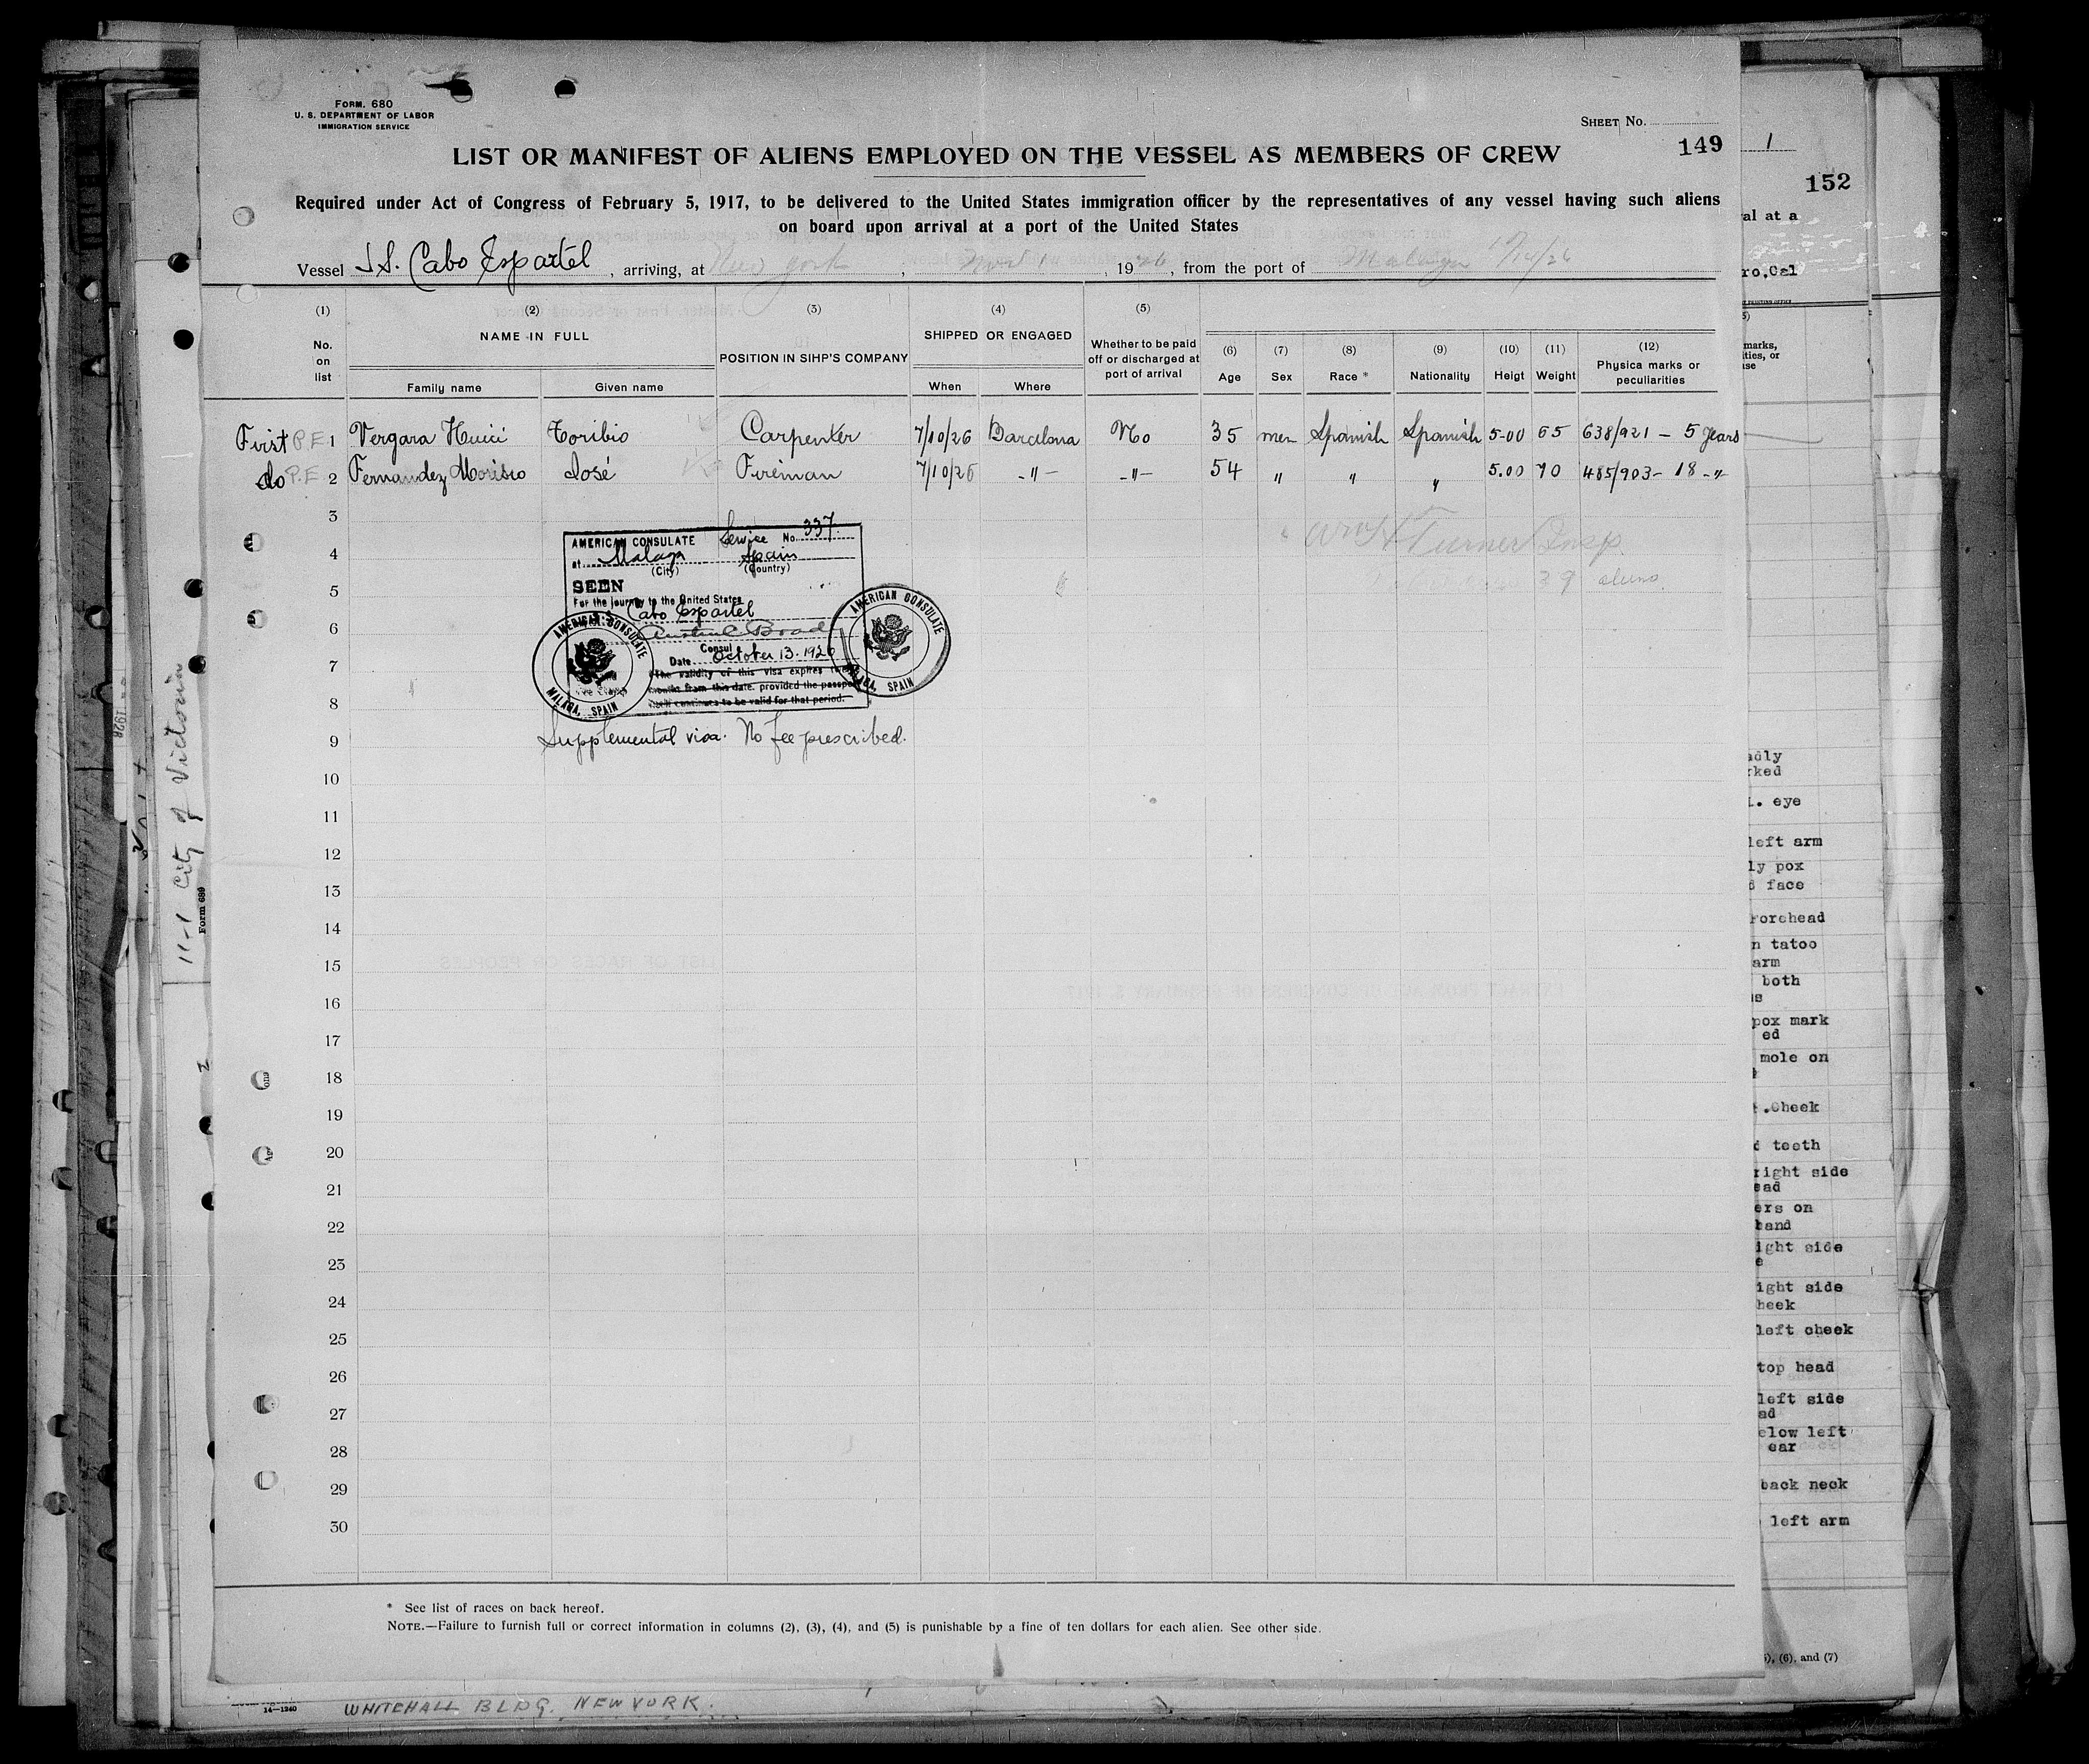 FORM. 680
U. S. DEPARTMENT OF LABOR
IMMIGRATION SERVICE
SHEET No.
149
LIST OR MANIFEST OF ALIENS EMPLOYED ON THE VESSEL AS MEMBERS OF CREW
Required under Act of Congress of February 5, 1917, to be delivered to the United States immigration officer by the representatives of any vessel having such aliens
on board upon arrival at a port of the United States
Vessel S.S. Cabo Espartel, arriving, at New York, Nov 1, 1926, from the port of Malaga
(1) (2) (3) (4) (5)
No. on list
NAME IN FULL
POSITION IN SIHP'S COMPANY
SHIPPED OR ENGAGED
Whether to be paid off or discharged at port of arrival
(6) (7) (8) (9) (10) (11) (12)
Family name Given name When Where Age Sex Race * Nationality Heigt Weight Physica marks or peculiarities
First P.E 1 Vergara Toribio Carpenter 7/10/26 Barcelona No 35 men Spanish Spanish 5-00 65 638/921 - 5 years
do P.E 2 Fernandez José Fireman 7/10/26 -"- -"- 54 " " " 5.00 70 485/903- 18 -"
3
4
5
6
7
8
9
10
11
12
13
14
15
16
17
18
19
20
21
22
23
24
25
26
27
28
29
30
AMERICAN CONSULATE Service No. 337
at Malaga Spain
(City) (Country)
SEEN
For the journey to the United States
Cabo Espartel
Consul
Date October 13. 1926
The validity of this visa expires
months from this date. provided the passport
itself continues to be valid for that period.
AMERICAN CONSULATE
MALAGA, SPAIN
AMERICAN CONSULATE
MALAGA, SPAIN
Supplemental visa. No fee prescribed.
Turner Insp
39 aliens
* See list of races on back hereof.
NOTE.—Failure to furnish full or correct information in columns (2), (3), (4), and (5) is punishable by a fine of ten dollars for each alien. See other side.
14—1240
WHITEHALL BLDG. NEW YORK.
11-1 City of Victoria
Form 689
1928
1
152
al at a
ro,Cal
marks,
ities, or
adly
rked
eye
left arm
ly pox
face
Forehead
n tatoo
arm
both
pox mark
ed
mole on
.Cheek
teeth
right side
ead
ers on
hand
ight side
ight side
heek
left cheek
top head
left side
ad
elow left
ear
back neck
left arm
(6), and (7)